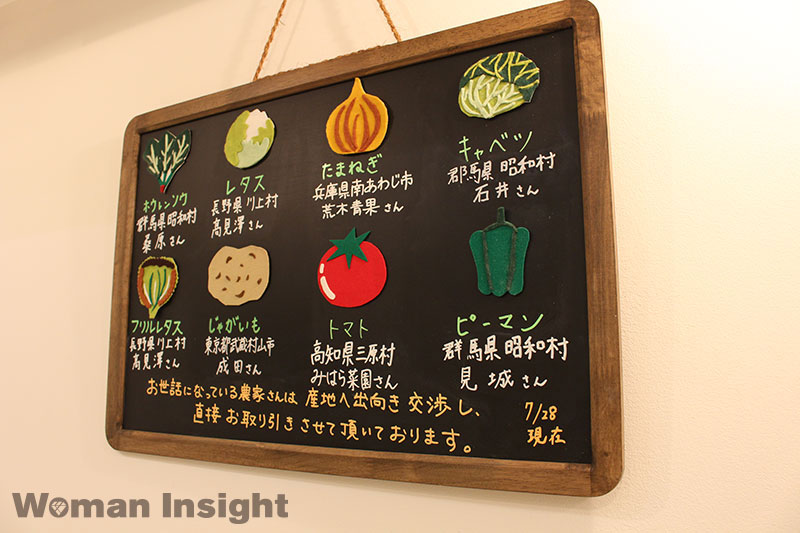 ホウレンソウ
群馬県昭和村
桑原さん
レタス
長野県川上村
高見澤さん
たまねぎ
兵庫県南あわじ市
荒木青果さん
キャベツ
郡馬県昭和村
石井さん
フリルレタス
長野県川上村
高見澤さん
じゃがいも
東京都武蔵村山市
成田さん
トマト
高知県三原村
みはら菜園さん
ピーマン
群馬県昭和村
見城さん
お世話になっている農家さんは産地へ出向き交渉し、
直接お取り引きさせて頂いております。
7/28
現在
Woman Insight